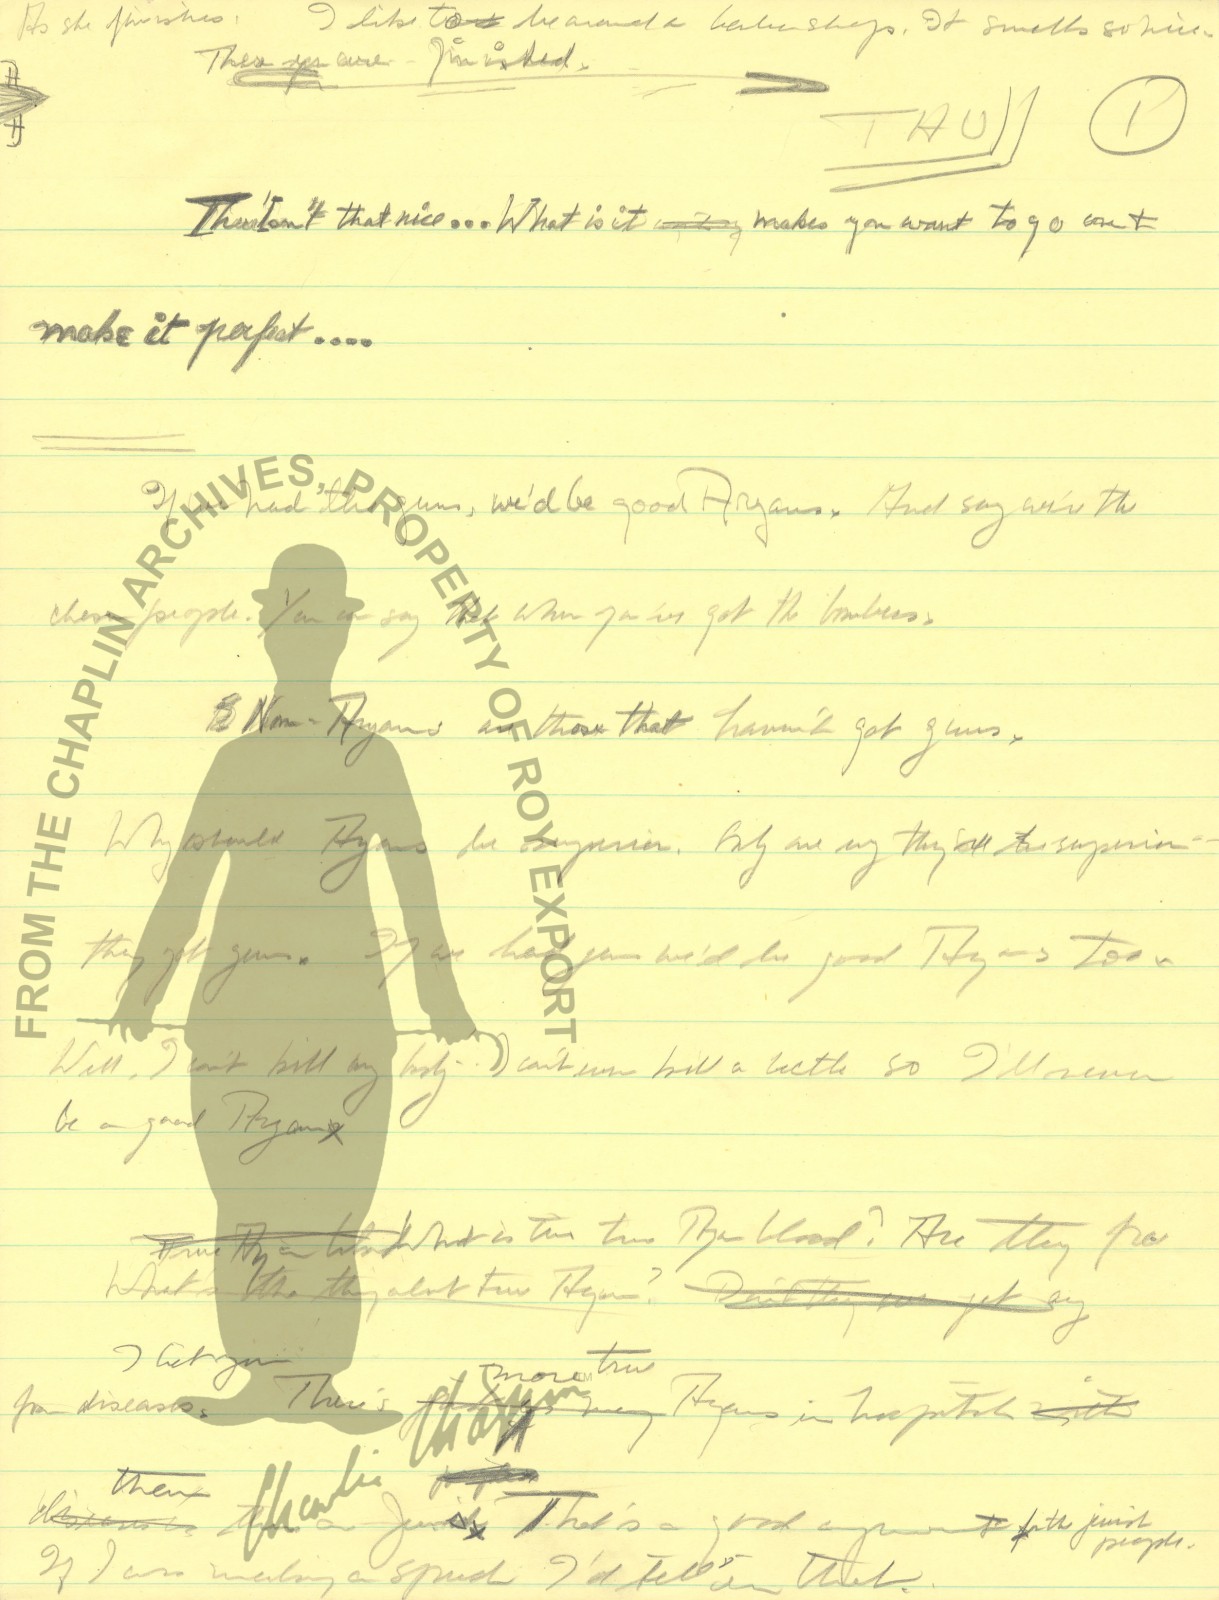 As she finishes: I like to be around a barber shop. It smells so nice.
There you are - finished.
THU 1
There! Isn't that nice... What is it makes you want to go out
make it perfect....
If we had the guns, we'd be good Aryans. And say we're the
chosen people. You can say that when you've got the bombers.
Non-Aryans are those that haven't got guns.
Why should Aryans be superior. Only one say they're superior --
they got guns. If we had guns we'd be good Aryans too.
Well, I can't kill any body -- I can't even kill a beetle so I'll never
be a good Aryan
True Aryan blood What is this true Aryan blood? Are they free
What's this thing about true Aryan? Don't they ever get any
I bet you
from diseases. There's more true Aryans in hospitals with
then
diseases than are Jews. That's a good argument for the jewish
people.
If I was making a speech I'd tell 'em that.
FROM THE CHAPLIN ARCHIVES, PROPERTY OF ROY EXPORT
Charlie Chaplin TM